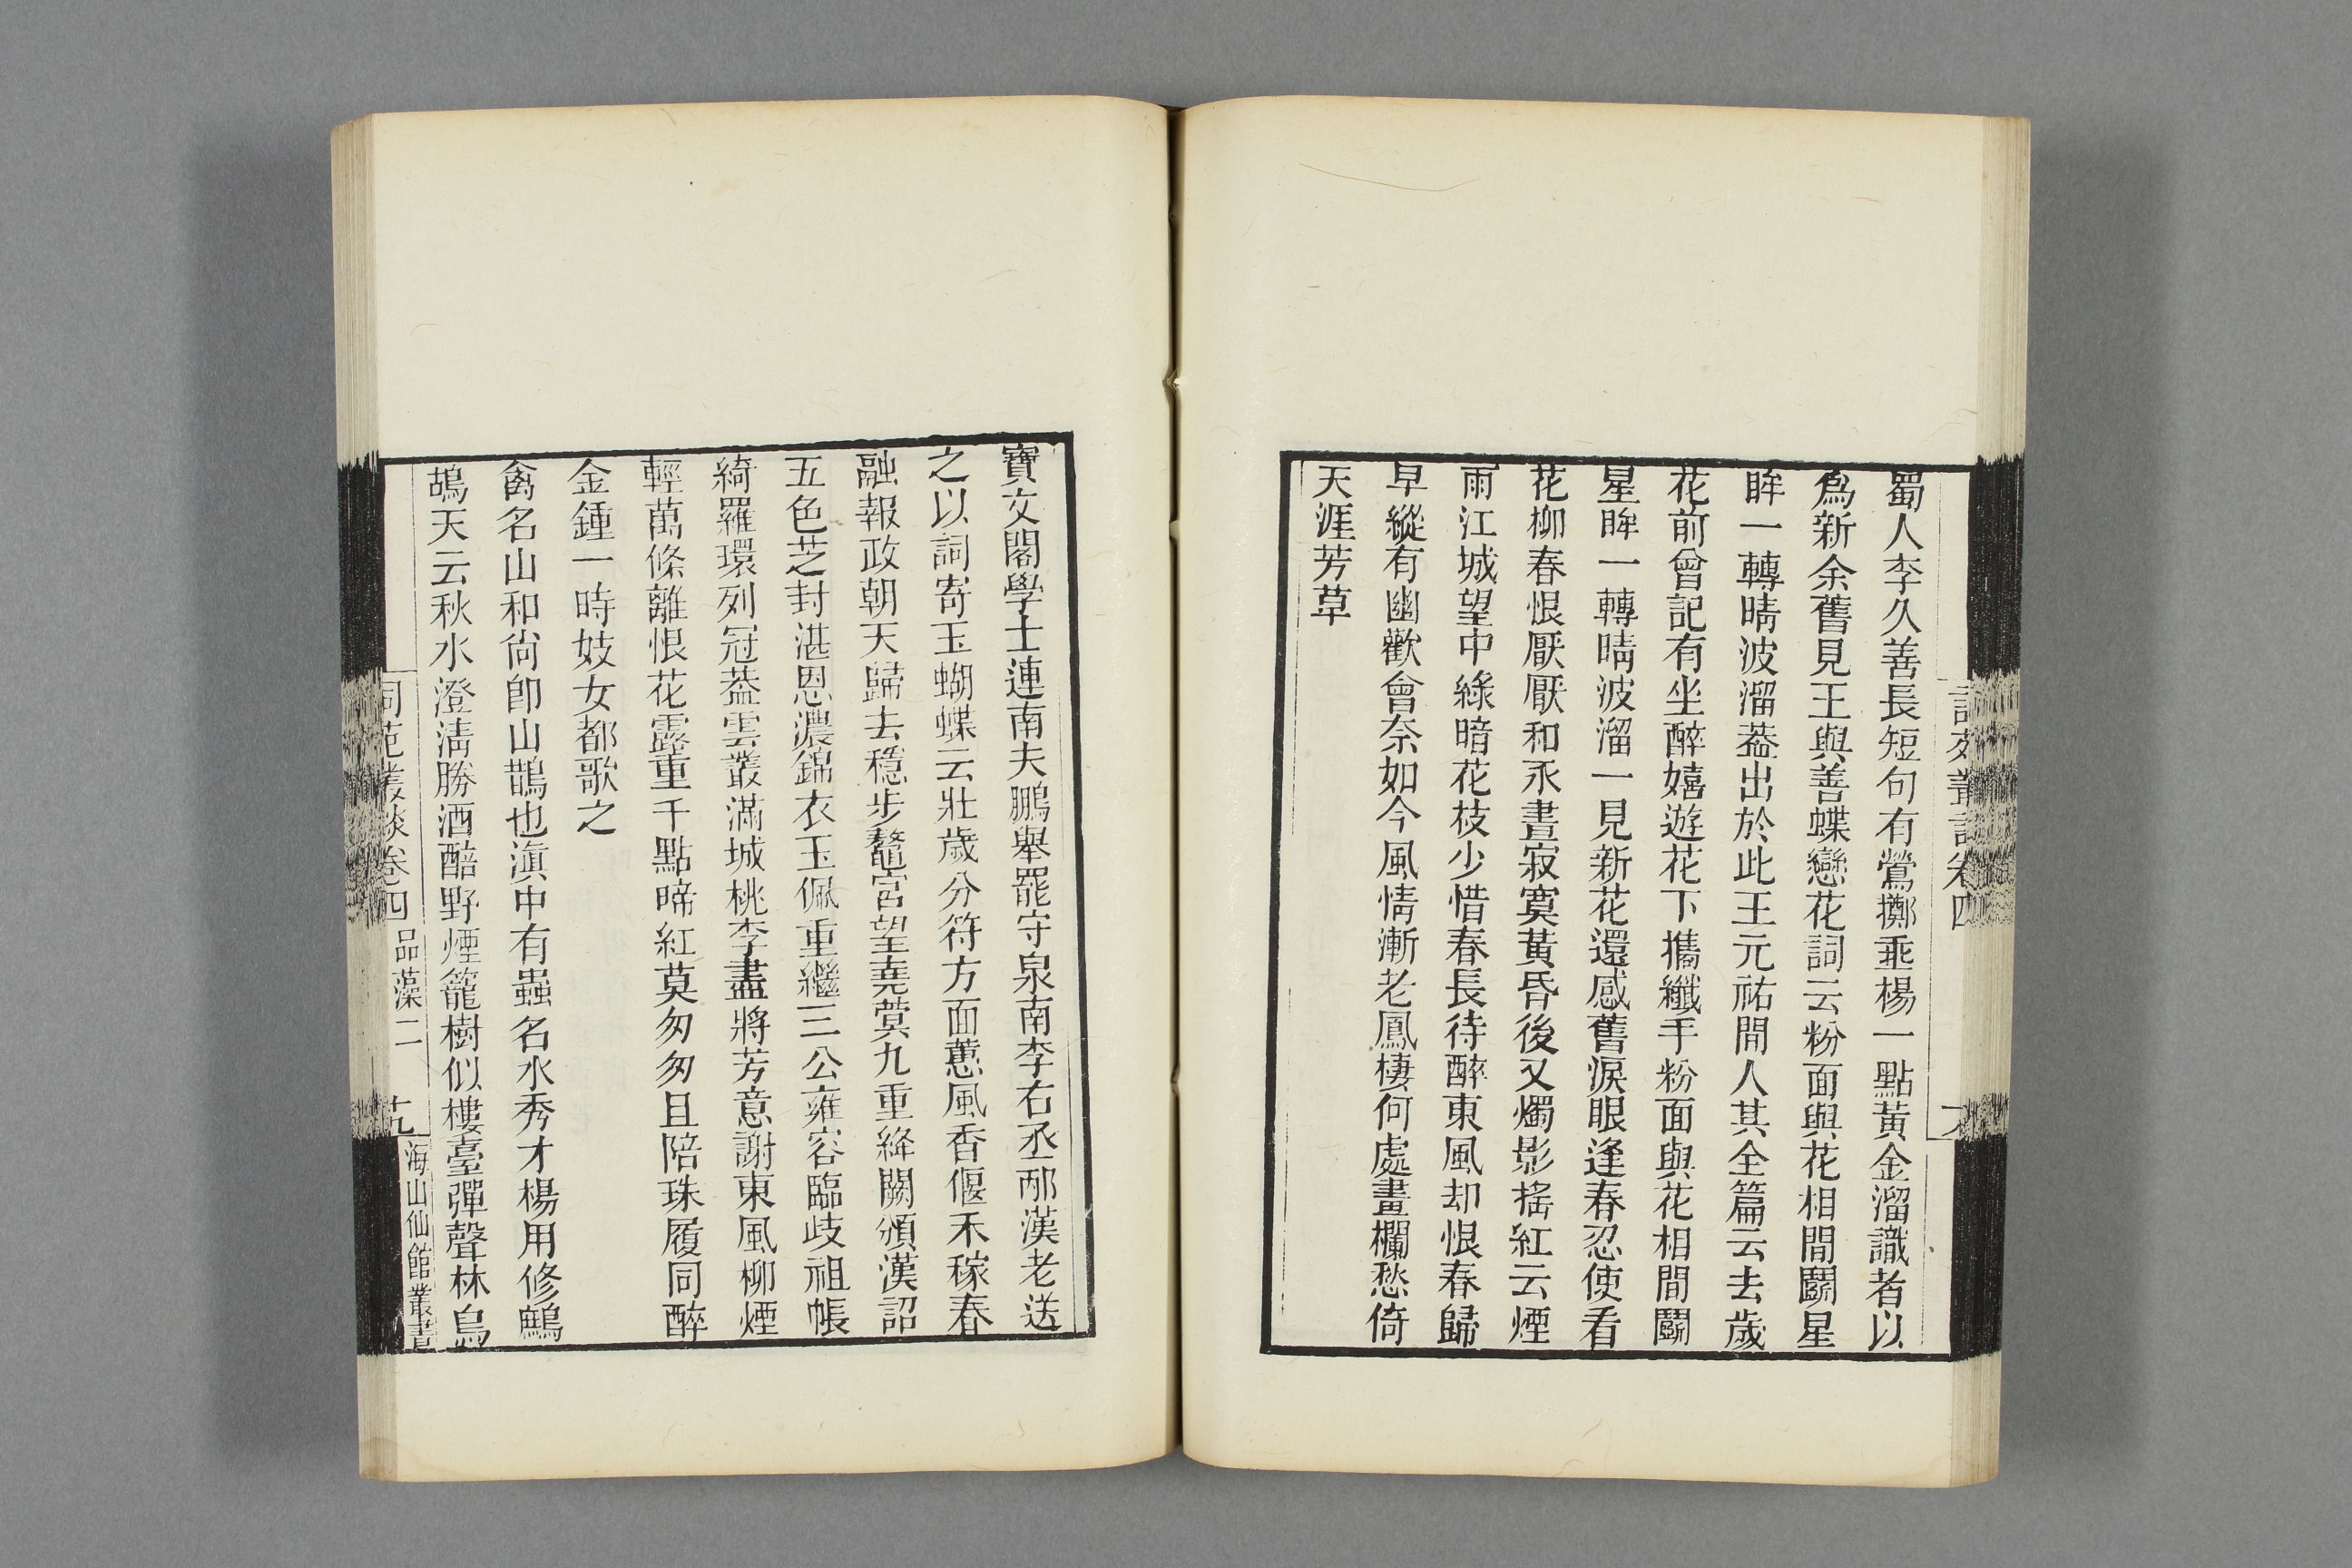 蜀人李久善長短句有鶯擲垂楊一點黃金溜識者以
爲新余舊見王與善蝶戀花詞云粉面與花相間鬭星
眸一轉晴波溜葢出於此王元祐間人其全篇云去歲
花前曾記有坐醉嬉遊花下攜纖手粉面與花相間鬭
星眸一轉晴波溜一見新花還感舊淚眼逢春忍使看
花柳春恨厭厭和永晝寂寞黃昏後又燭影搖紅云煙
雨江城望中綠暗花枝少惜春長待醉東風却恨春歸
早縱有幽歡會奈如今風情漸老鳳棲何處畫欄愁倚
天涯芳草
寶文閣學士連南夫鵬舉罷守泉南李右丞邴漢老送
之以詞寄玉蝴蝶云壯歲分符方面蕙風香偃禾稼春
融報政朝天歸去穩步鼇宮望堯蓂九重絳闕頒漢詔
五色芝封湛恩濃錦衣玉佩重繼三公雍容臨歧祖帳
綺羅環列冠葢雲叢滿城桃李盡將芳意謝東風柳煙
輕萬條離恨花露重千點啼紅莫匆匆且陪珠履同醉
金鍾一時妓女都歌之
禽名山和尙卽山鵲也滇中有蟲名水秀才楊用修鷓
鴣天云秋水澄淸勝酒醅野煙籠樹似樓臺彈聲林鳥
詞苑叢談卷四 品藻二 十九 海山仙館叢書